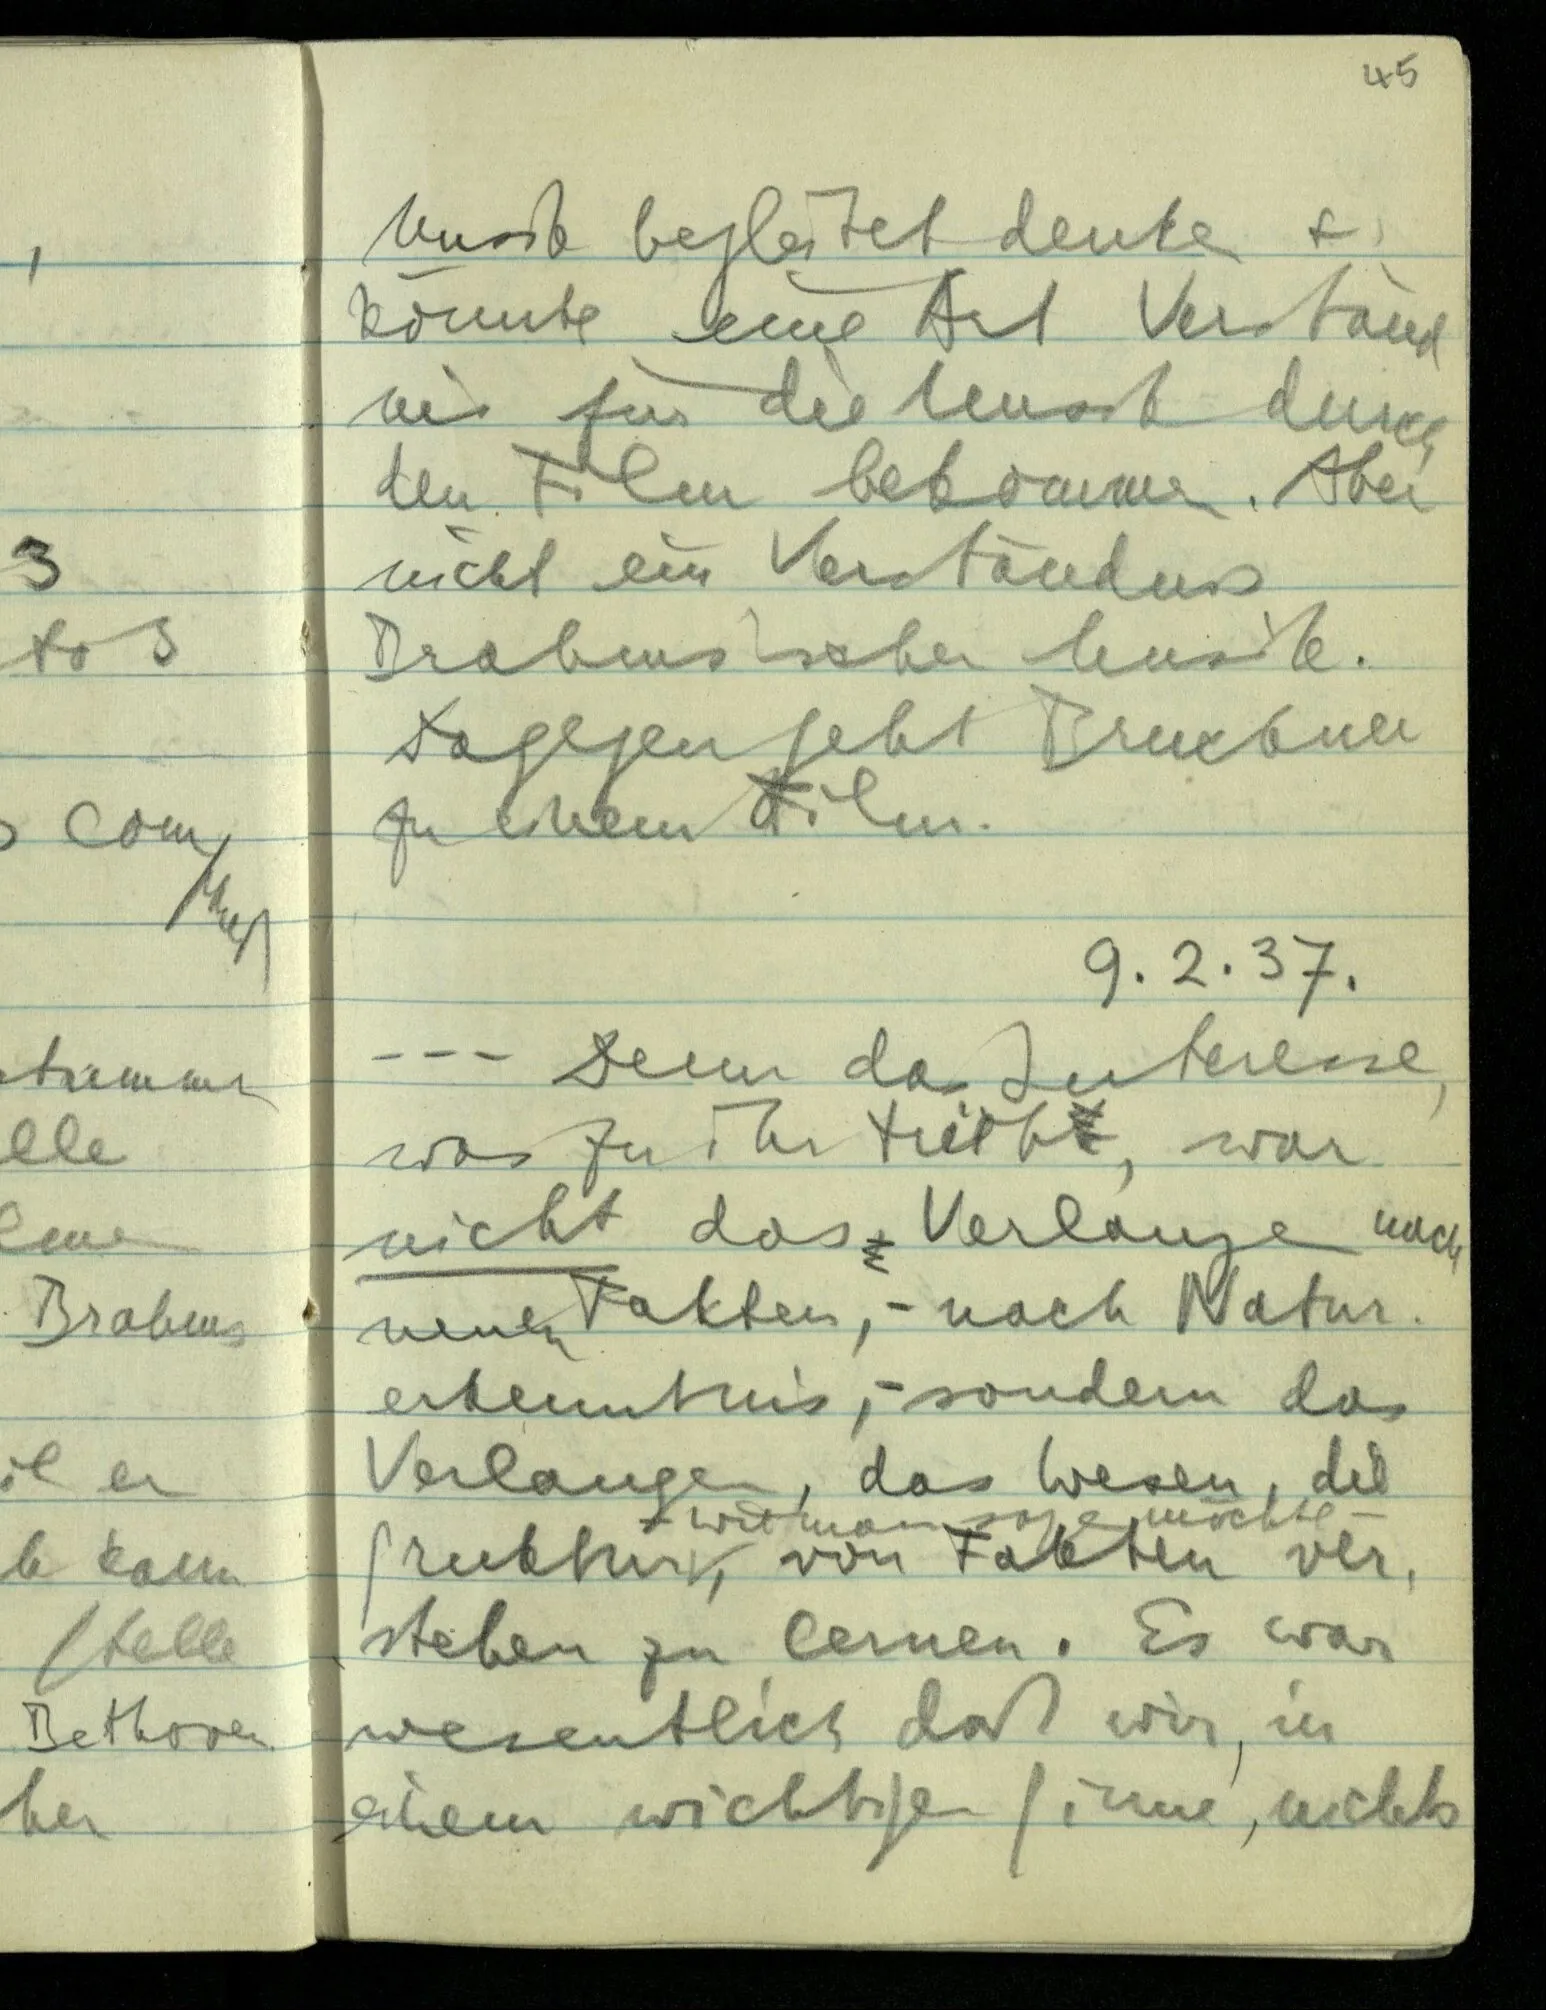 ,
3
to 3
com
stimmen
elle
Brahms
il er
b kann
Stelle
Bethoven
her
45
Musik begleitet denke &
könnte eine Art Verständ
nis für die Musik durch
den Film bekommen. Aber
nicht ein Verständnis
Brahmsischer Musik.
Dagegen geht Bruckner
zu einem Film.
9. 2. 37.
--- Denn das Interesse,
was zu ihr treibt, war
nicht das Verlangen nach
neuen Fakten, - nach Natur-
erkenntnis, - sondern das
Verlangen, das Wesen, die
- wie man sagen möchte -
Struktur, von Fakten ver-
stehen zu lernen. Es war
wesentlich daß wir, in
einem wichtigen Sinne, nichts